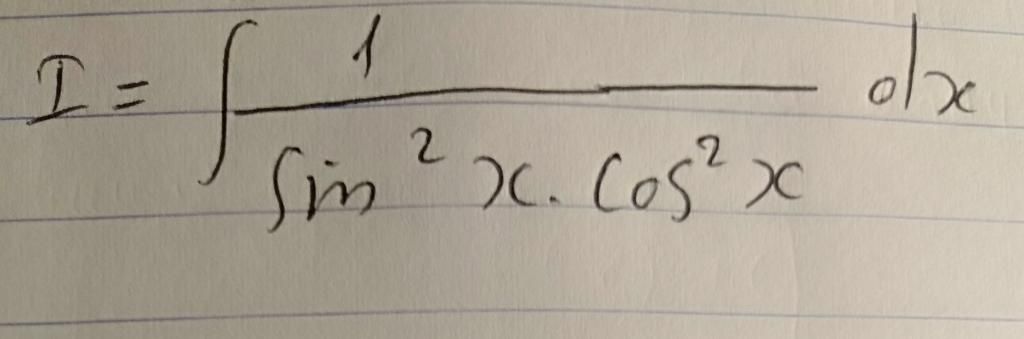 I = ∫ 1 / (sin² x . cos² x) dx